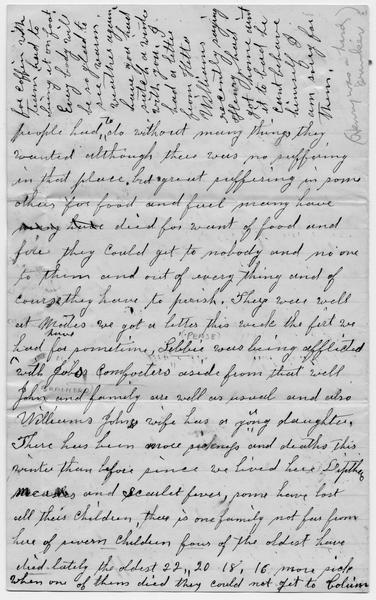 people had to do without many things they
wanted although there was no suffering
in that place, but great suffering in some
others for food and fuel many have
many have died for want of food and
fire they could get to nobody and no one
to them and out of every thing and of
course they have to perish. They was well
at we got a letter this week the first we
have
had for sometime, Lebbie was being afflicted
with Jobs Comforters aside from that well
John and family are well as usual and also
Williams Johns wife has a yong daughter.
There has been more sickness and deaths this
winter than before since we lived here Dipthe
Measles and Scarlet fever, some have lost
all their children, there is one family not far from
here of seven children four of the oldest have
died lately the oldest 22, 20 18, 16, more sick
when one of them died they could not get to Colum
for coffin with
team had to
bring it on foot
Every body will
be so glad to
see warm
weather again
have you had
much a winter
with you. I
had a letter
from Hettie
Williams
recently saying
Henry Day
got home and
it to bad he
cant behave
himself I
am sorry for
them.
(Henry was a hard
drinker)